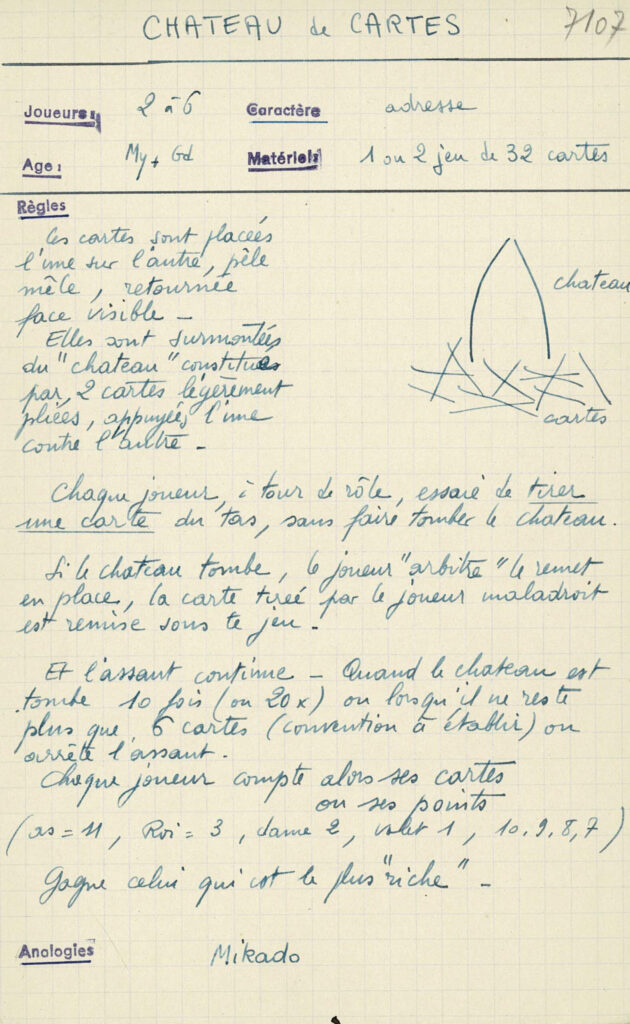 CHATEAU de CARTES
7107
Joueurs: 2 à 6 Caractère adresse
Age: My + Gd Matériel: 1 ou 2 jeu de 32 cartes
Règles
Les cartes sont placées
l'une sur l'autre, pêle
mêle, retournée
face visible -
Elles sont surmontées
du "chateau" constitués
par 2 cartes légèrement
pliées, appuyées l'une
contre l'autre -
chateau
cartes
Chaque joueur, à tour de rôle, essaie de tirer
une carte du tas, sans faire tomber le chateau.
Si le chateau tombe, le joueur "arbitre" le remet
en place, la carte tirée par le joueur maladroit
est remise sous le jeu -
Et l'assaut continue - Quand le chateau est
tombé 10 fois (ou 20x) ou lorsqu'il ne reste
plus que 6 cartes (convention à établir) on
arrête l'assaut.
Chaque joueur compte alors ses cartes
ou ses points
(as = 11, Roi = 3, dame 2, valet 1, 10, 9, 8, 7)
Gagne celui qui est le plus "riche" -
Analogies Mikado